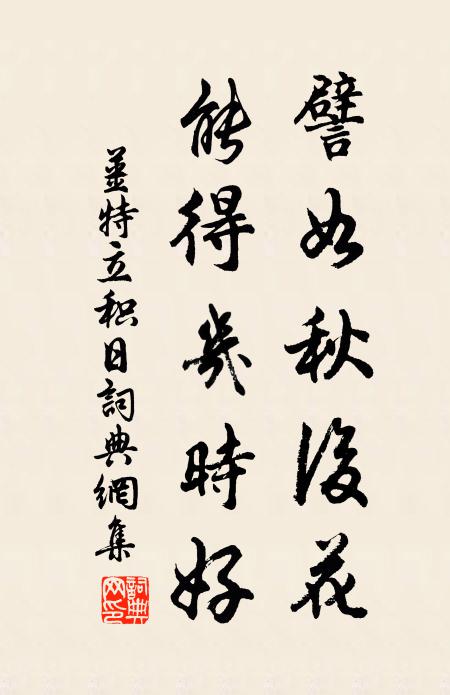 譬如秋後花
能得幾時好
薑特立积日詞典網集
詞典
网印